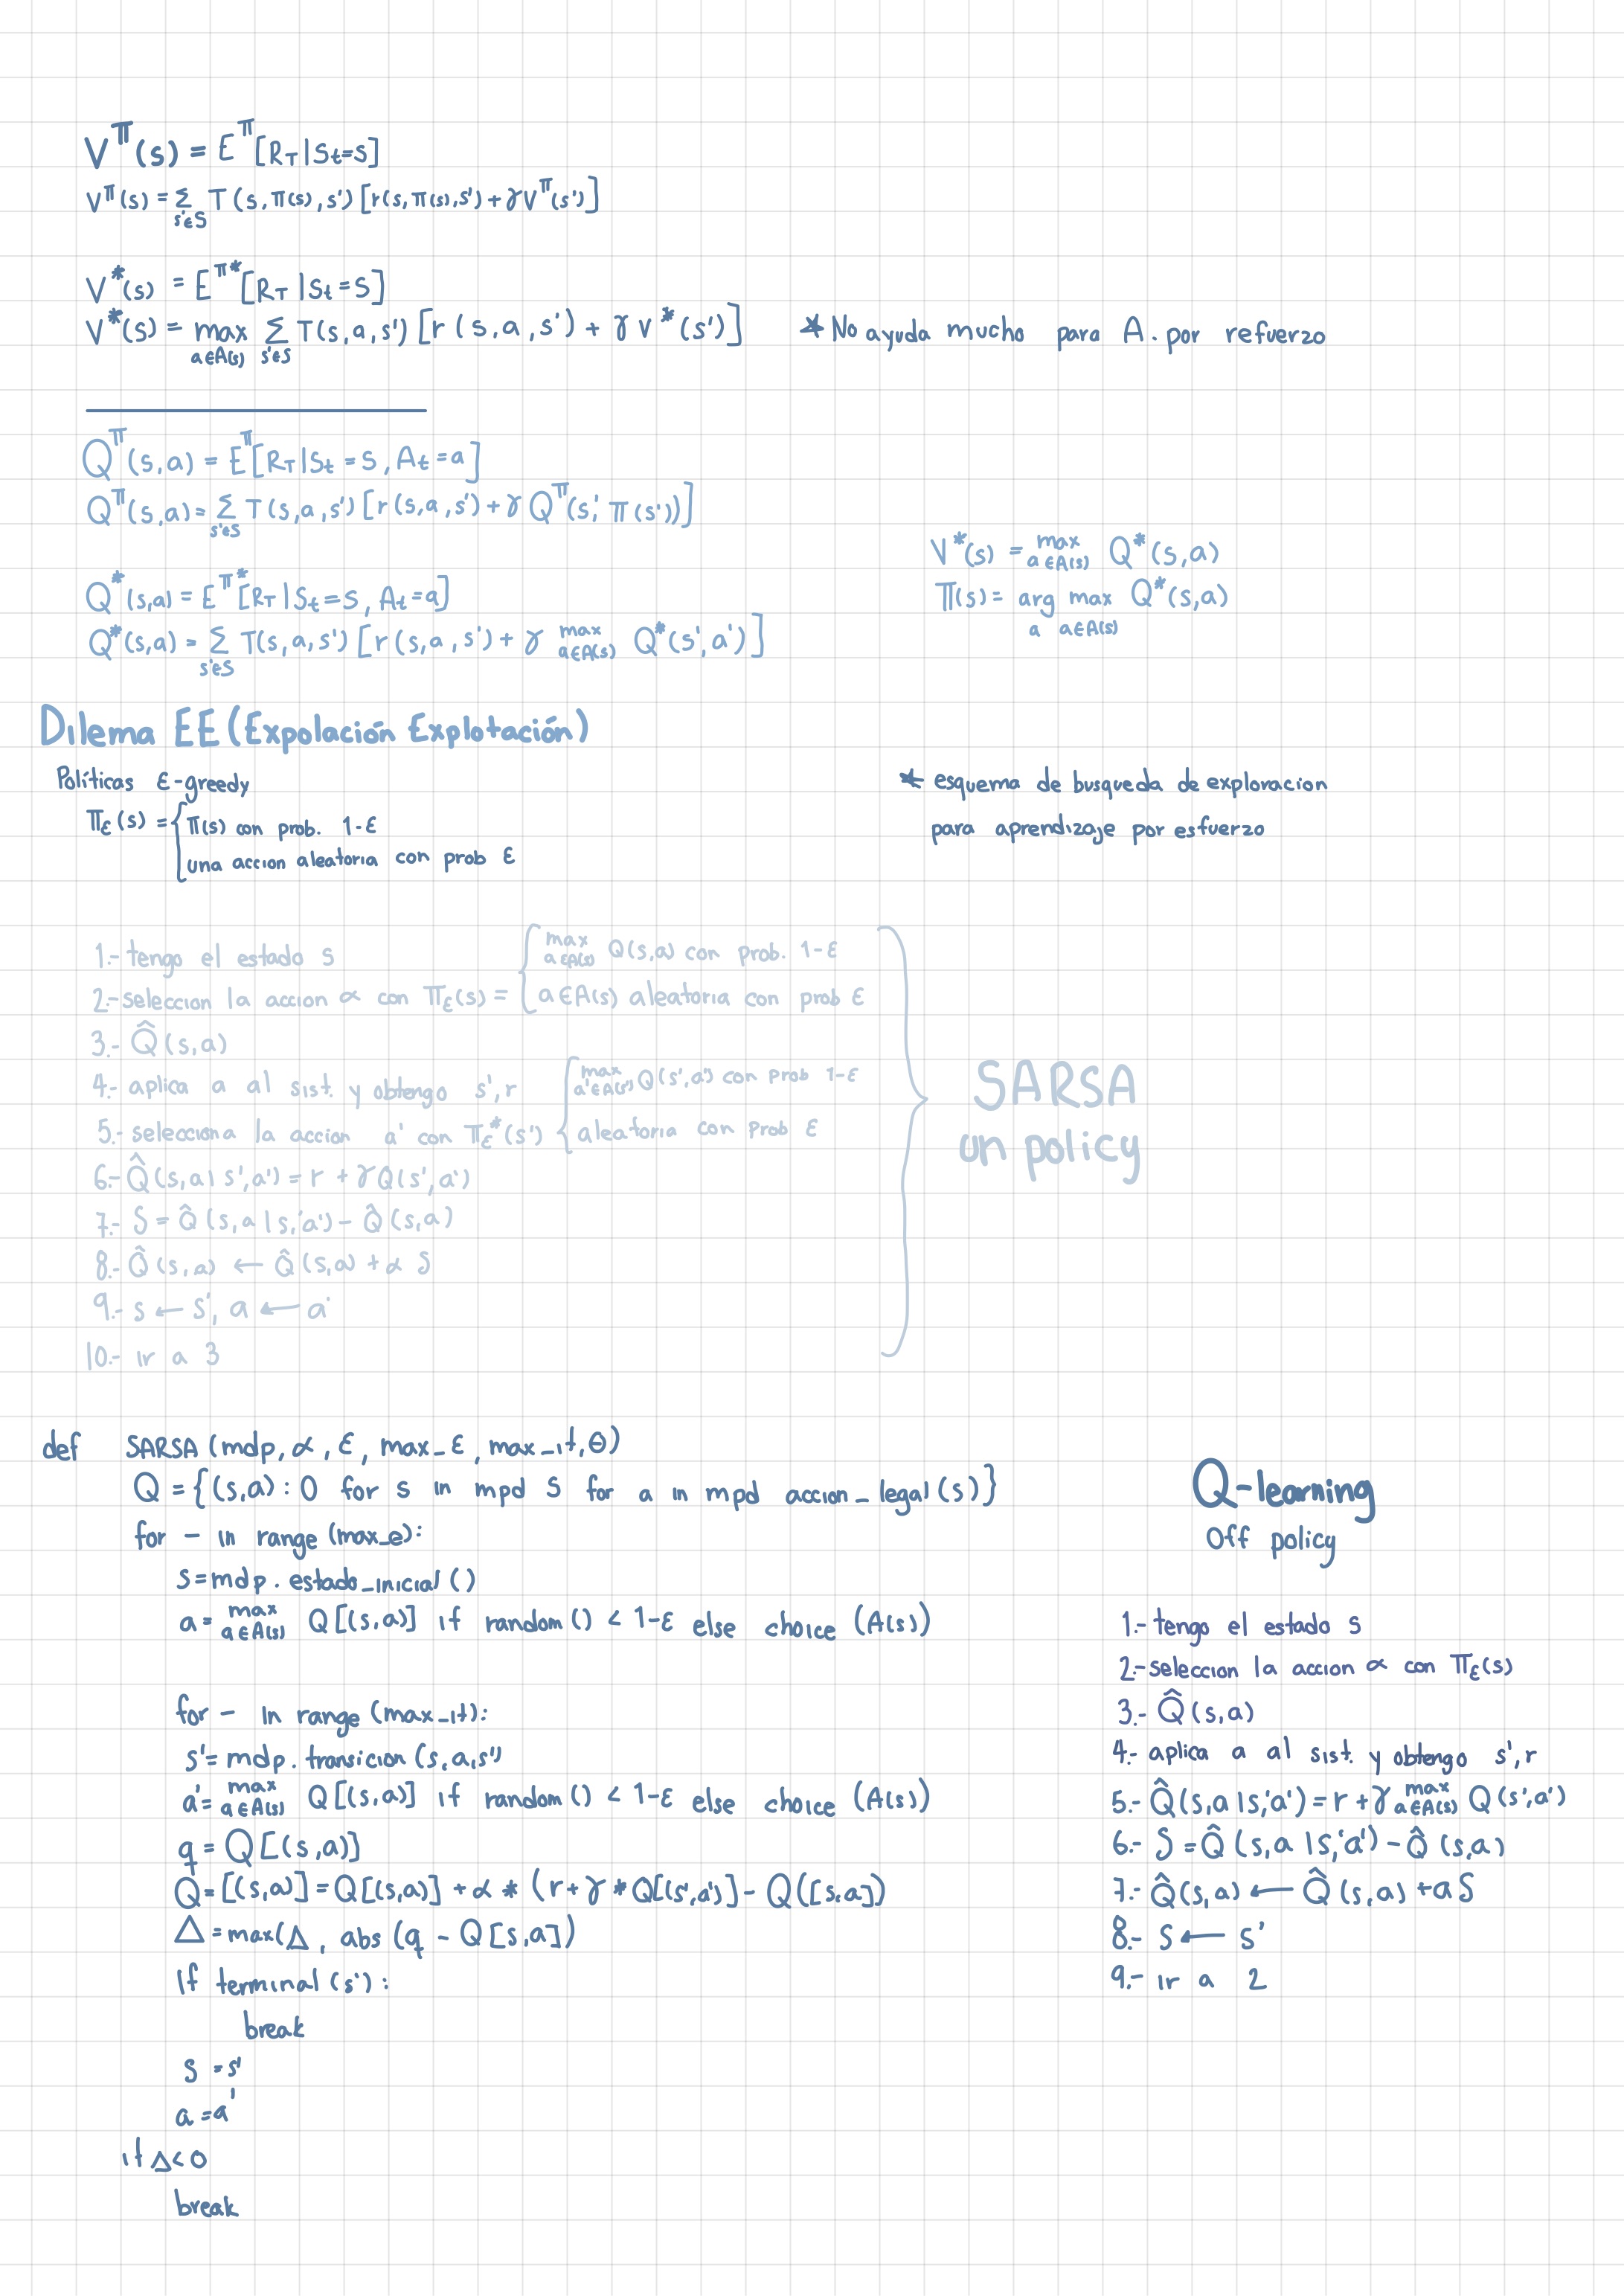 V^π(s) = E^π[R_T | S_t = s]
V^π(s) = Σ_{s'∈S} T(s, π(s), s') [r(s, π(s), s') + γ V^π(s')]
V*(s) = E^π*[R_T | S_t = S]
V*(s) = max_{a∈A(s)} Σ_{s'∈S} T(s, a, s') [r(s, a, s') + γ V*(s')]
* No ayuda mucho para A. por refuerzo
Q^π(s,a) = E^π[R_T | S_t = s, A_t = a]
Q^π(s,a) = Σ_{s'∈S} T(s, a, s') [r(s,a,s') + γ Q^π(s', π(s'))]
Q*(s,a) = E^π*[R_T | S_t = s, A_t = a]
Q*(s,a) = Σ_{s'∈S} T(s, a, s') [r(s, a, s') + γ max_{a∈A(s)} Q*(s', a')]
V*(s) = max_{a∈A(s)} Q*(s,a)
π(s) = arg max_{a a∈A(s)} Q*(s,a)
Dilema EE (Expolación Explotación)
Políticas ε-greedy
π_ε(s) = { π(s) con prob. 1-ε
una accion aleatoria con prob ε
* esquema de busqueda de exploracion
para aprendizaje por esfuerzo
1.- tengo el estado s
2.- seleccion la accion α con π_ε(s) = { max_{a∈A(s)} Q(s,a) con prob. 1-ε
a∈A(s) aleatoria con prob ε
3.- Q̂(s,a)
4.- aplica a al sist. y obtengo s', r
5.- selecciona la accion a' con π_ε*(s') { max_{a'∈A(s')} Q(s',a') con prob 1-ε
aleatoria con prob ε
6.- Q̂(s,a | s',a') = r + γ Q(s',a')
7.- δ = Q̂(s,a | s,'a') - Q̂(s,a)
8.- Q̂(s,a) ← Q̂(s,a) + α δ
9.- s ← s', a ← a'
10.- ir a 3
SARSA
un policy
def SARSA (mdp, α, ε, max_ε, max_it, θ)
Q = {(s,a) : 0 for s in mpd S for a in mpd accion_legal (s)}
for - in range (max_e):
s = mdp. estado_inicial ()
a = max_{a∈A(s)} Q[(s,a)] if random () < 1-ε else choice (A(s))
for - in range (max_it):
s' = mdp. transicion (s,a,s')
a' = max_{a∈A(s)} Q[(s,a)] if random () < 1-ε else choice (A(s))
q = Q[(s,a)]
Q = [(s,a)] = Q[(s,a)] + α * (r + γ * Q[(s',a')] - Q([s,a])
Δ = max(Δ, abs (q - Q[s,a])
if terminal (s') :
break
s = s'
a = a'
if Δ < 0
break
Q-learning
Off policy
1.- tengo el estado s
2.- seleccion la accion α con π_ε(s)
3.- Q̂(s,a)
4.- aplica a al sist. y obtengo s', r
5.- Q̂(s,a | s,'a') = r + γ max_{a∈A(s)} Q(s',a')
6.- δ = Q̂(s,a | s,'a') - Q̂(s,a)
7.- Q̂(s,a) ← Q̂(s,a) + a δ
8.- s ← s'
9.- ir a 2